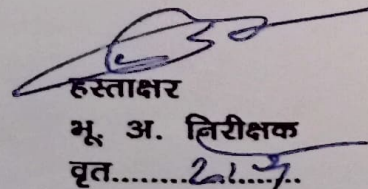 हस्ताक्षर
भू. अ. निरीक्षक
वृत...............